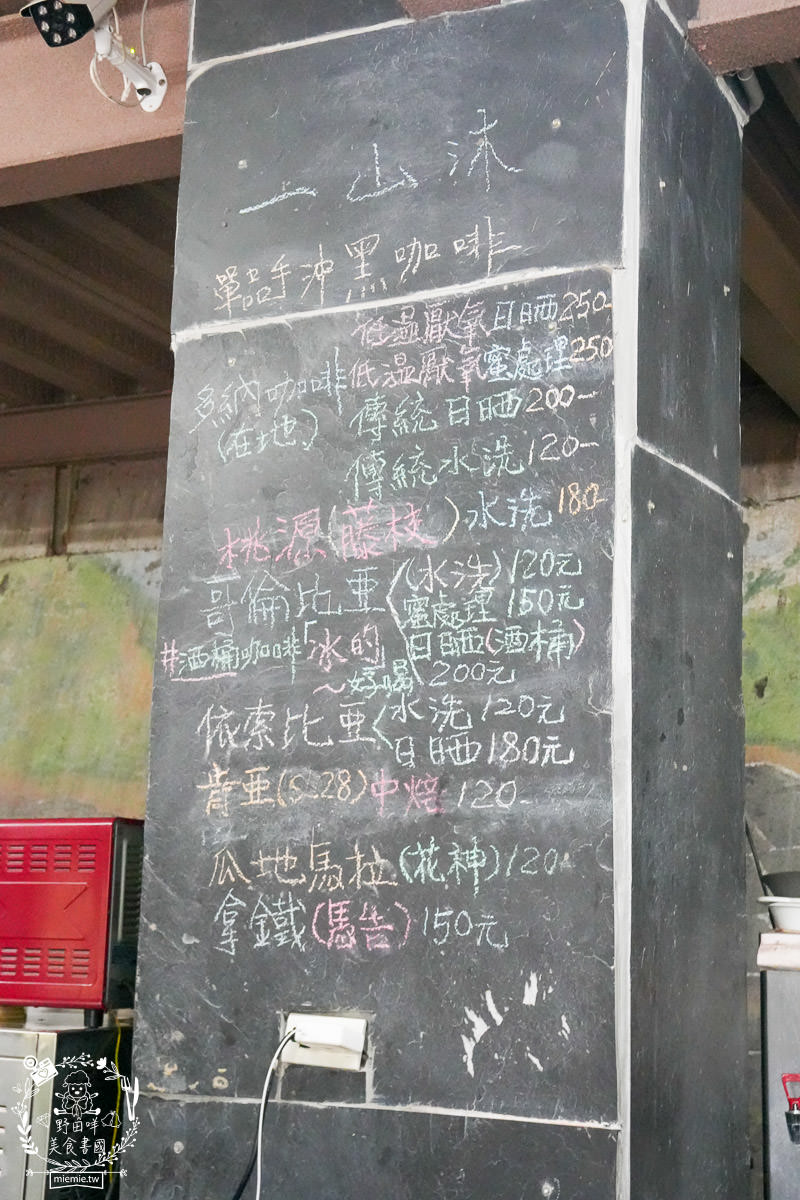 一山沐
單品手沖黑咖啡
低溫厭氧日晒250-
多納咖啡 低溫厭氧蜜處理250
(在地) 傳統日晒200-
傳統水洗120-
桃源(藤枝)水洗180-
哥倫比亞 (水洗)120元
蜜處理150元
#酒桶咖啡「冰的 日晒(酒桶)
~好喝 200元
依索比亞 水洗120元
日晒180元
肯亞(S-28)中焙120-
瓜地馬拉(花神)120-
拿鐵(馬告)150元
野田咩
美食書國
miemie.tw